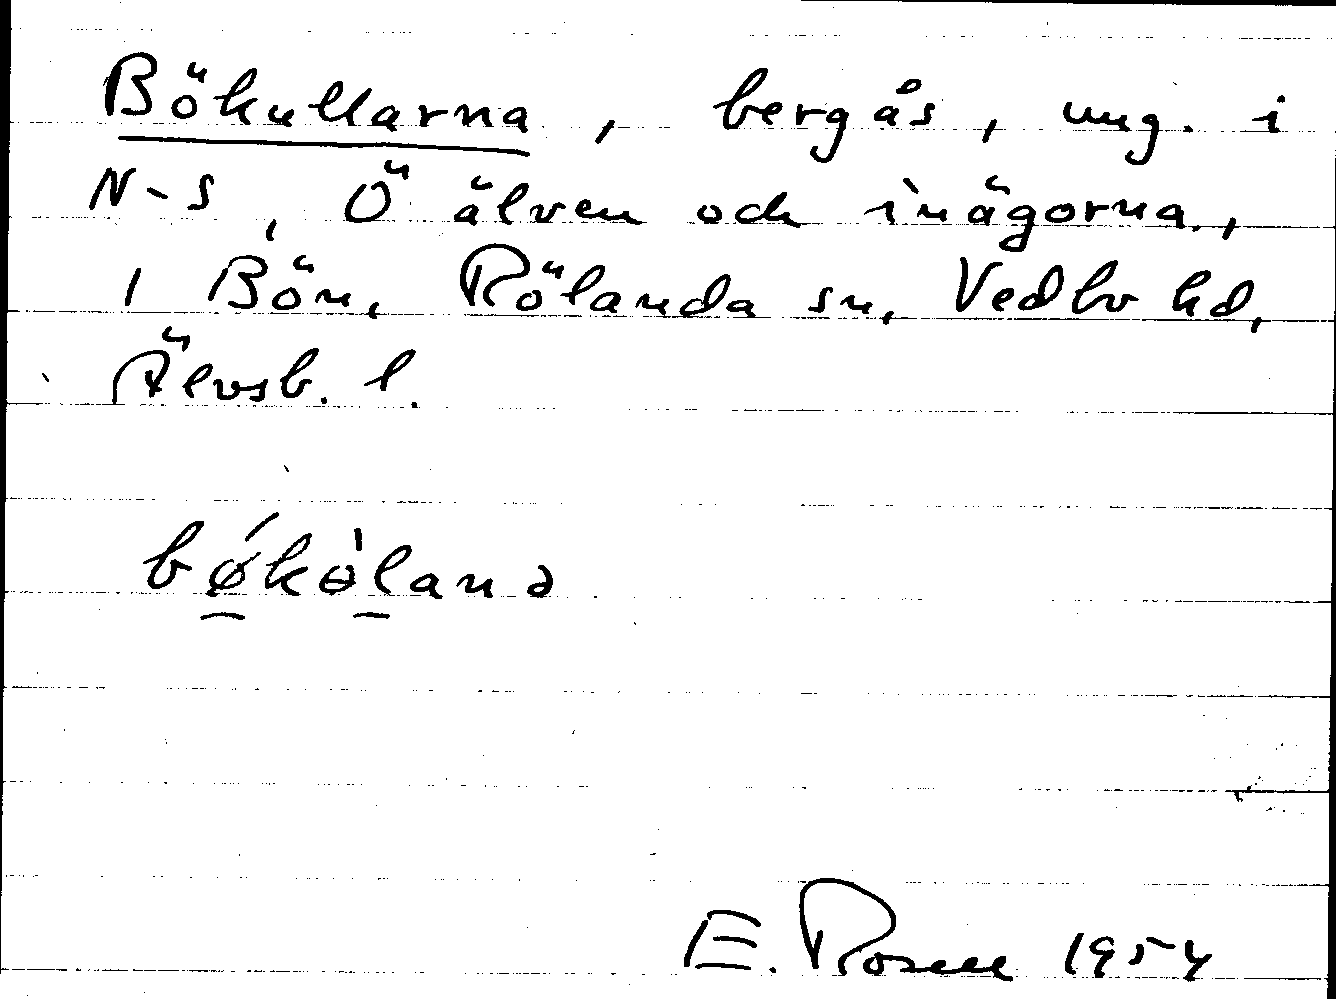 Bökullarna, bergås, ung. i
N-S, Ö älven och inägorna,
1 Bön, Rölanda sn, Vedbo hd,
Älvsb. l.
bǿ̱kɵ̀ḻanə
E. Rosell 1954